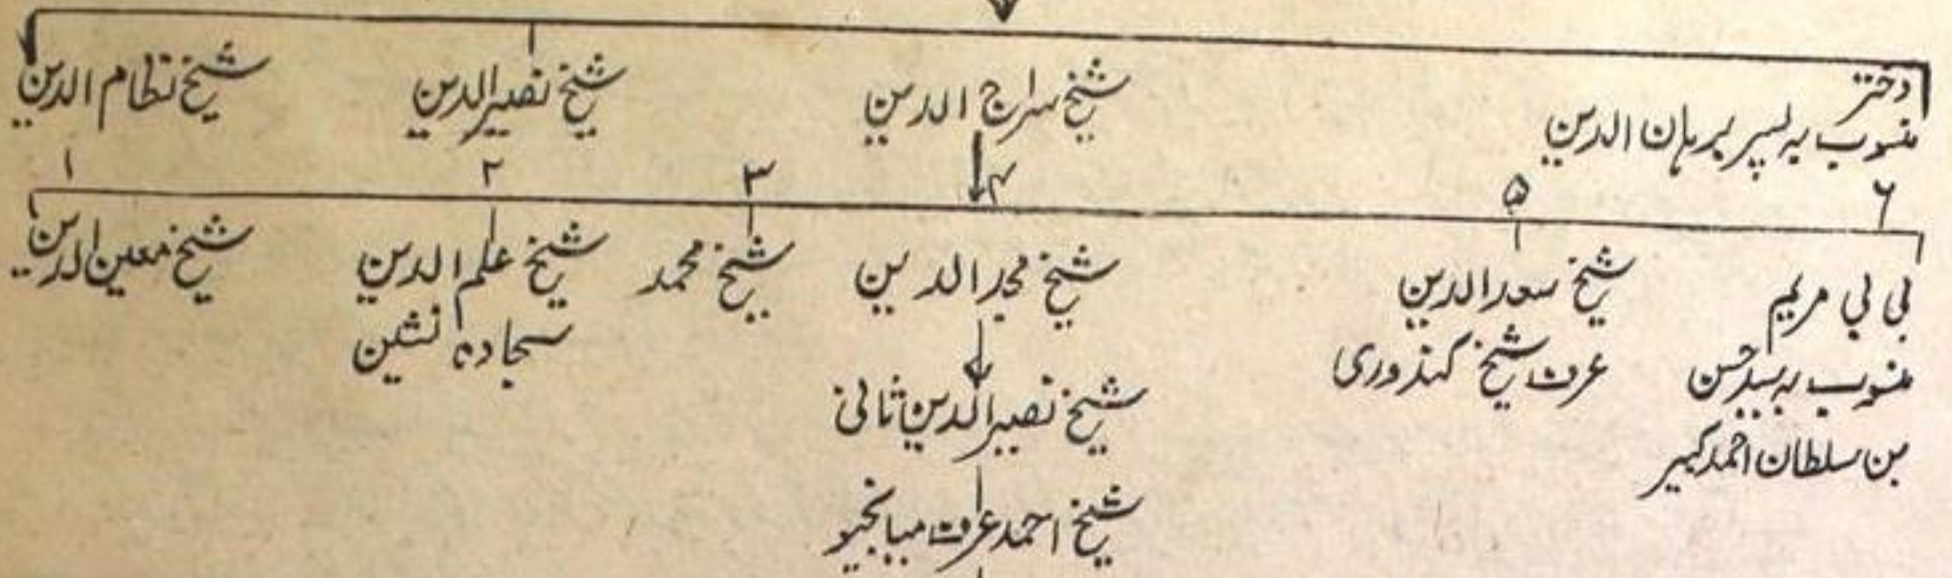 دختر
منسوب بہ پسر برہان الدین
شیخ سراج الدین
شیخ نصیر الدین
شیخ نظام الدین
۶
۵
۴
۳
۲
۱
بی بی مریم
منسوب بہ سید حسن
بن سلطان احمد کبیر
شیخ سعد الدین
عرف شیخ کندوری
شیخ مجد الدین
شیخ محمد
شیخ علم الدین
سجادہ نشین
شیخ معین الدین
شیخ نصیر الدین ثانی
شیخ احمد عرف میانجیو